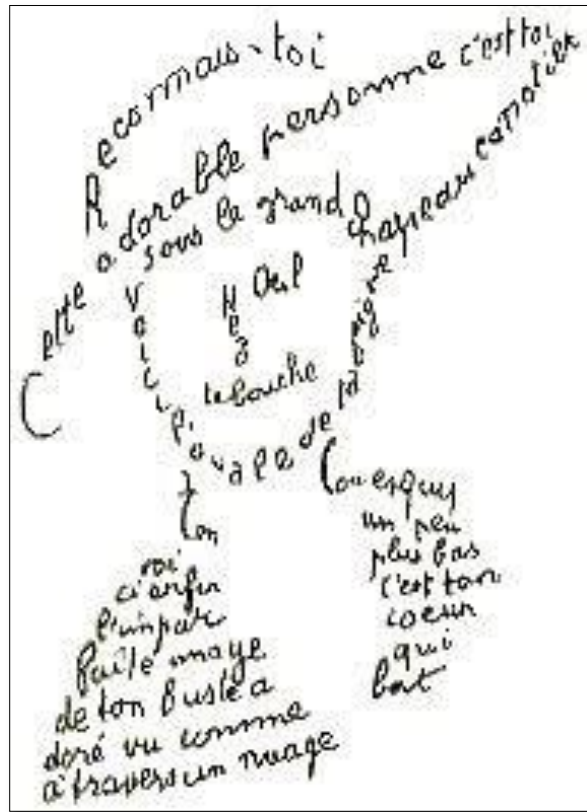 Reconnais-toi
Cette adorable personne c'est toi
sous le grand chapeau canotier
Oeil
Nez
ta bouche
Voici l'ovale de ta figure
Ton
Cou exquis
voi
ci enfin
l'impar
faite image
de ton buste a
doré vu comme
à travers un nuage
un peu
plus bas
c'est ton
coeur
qui
bat